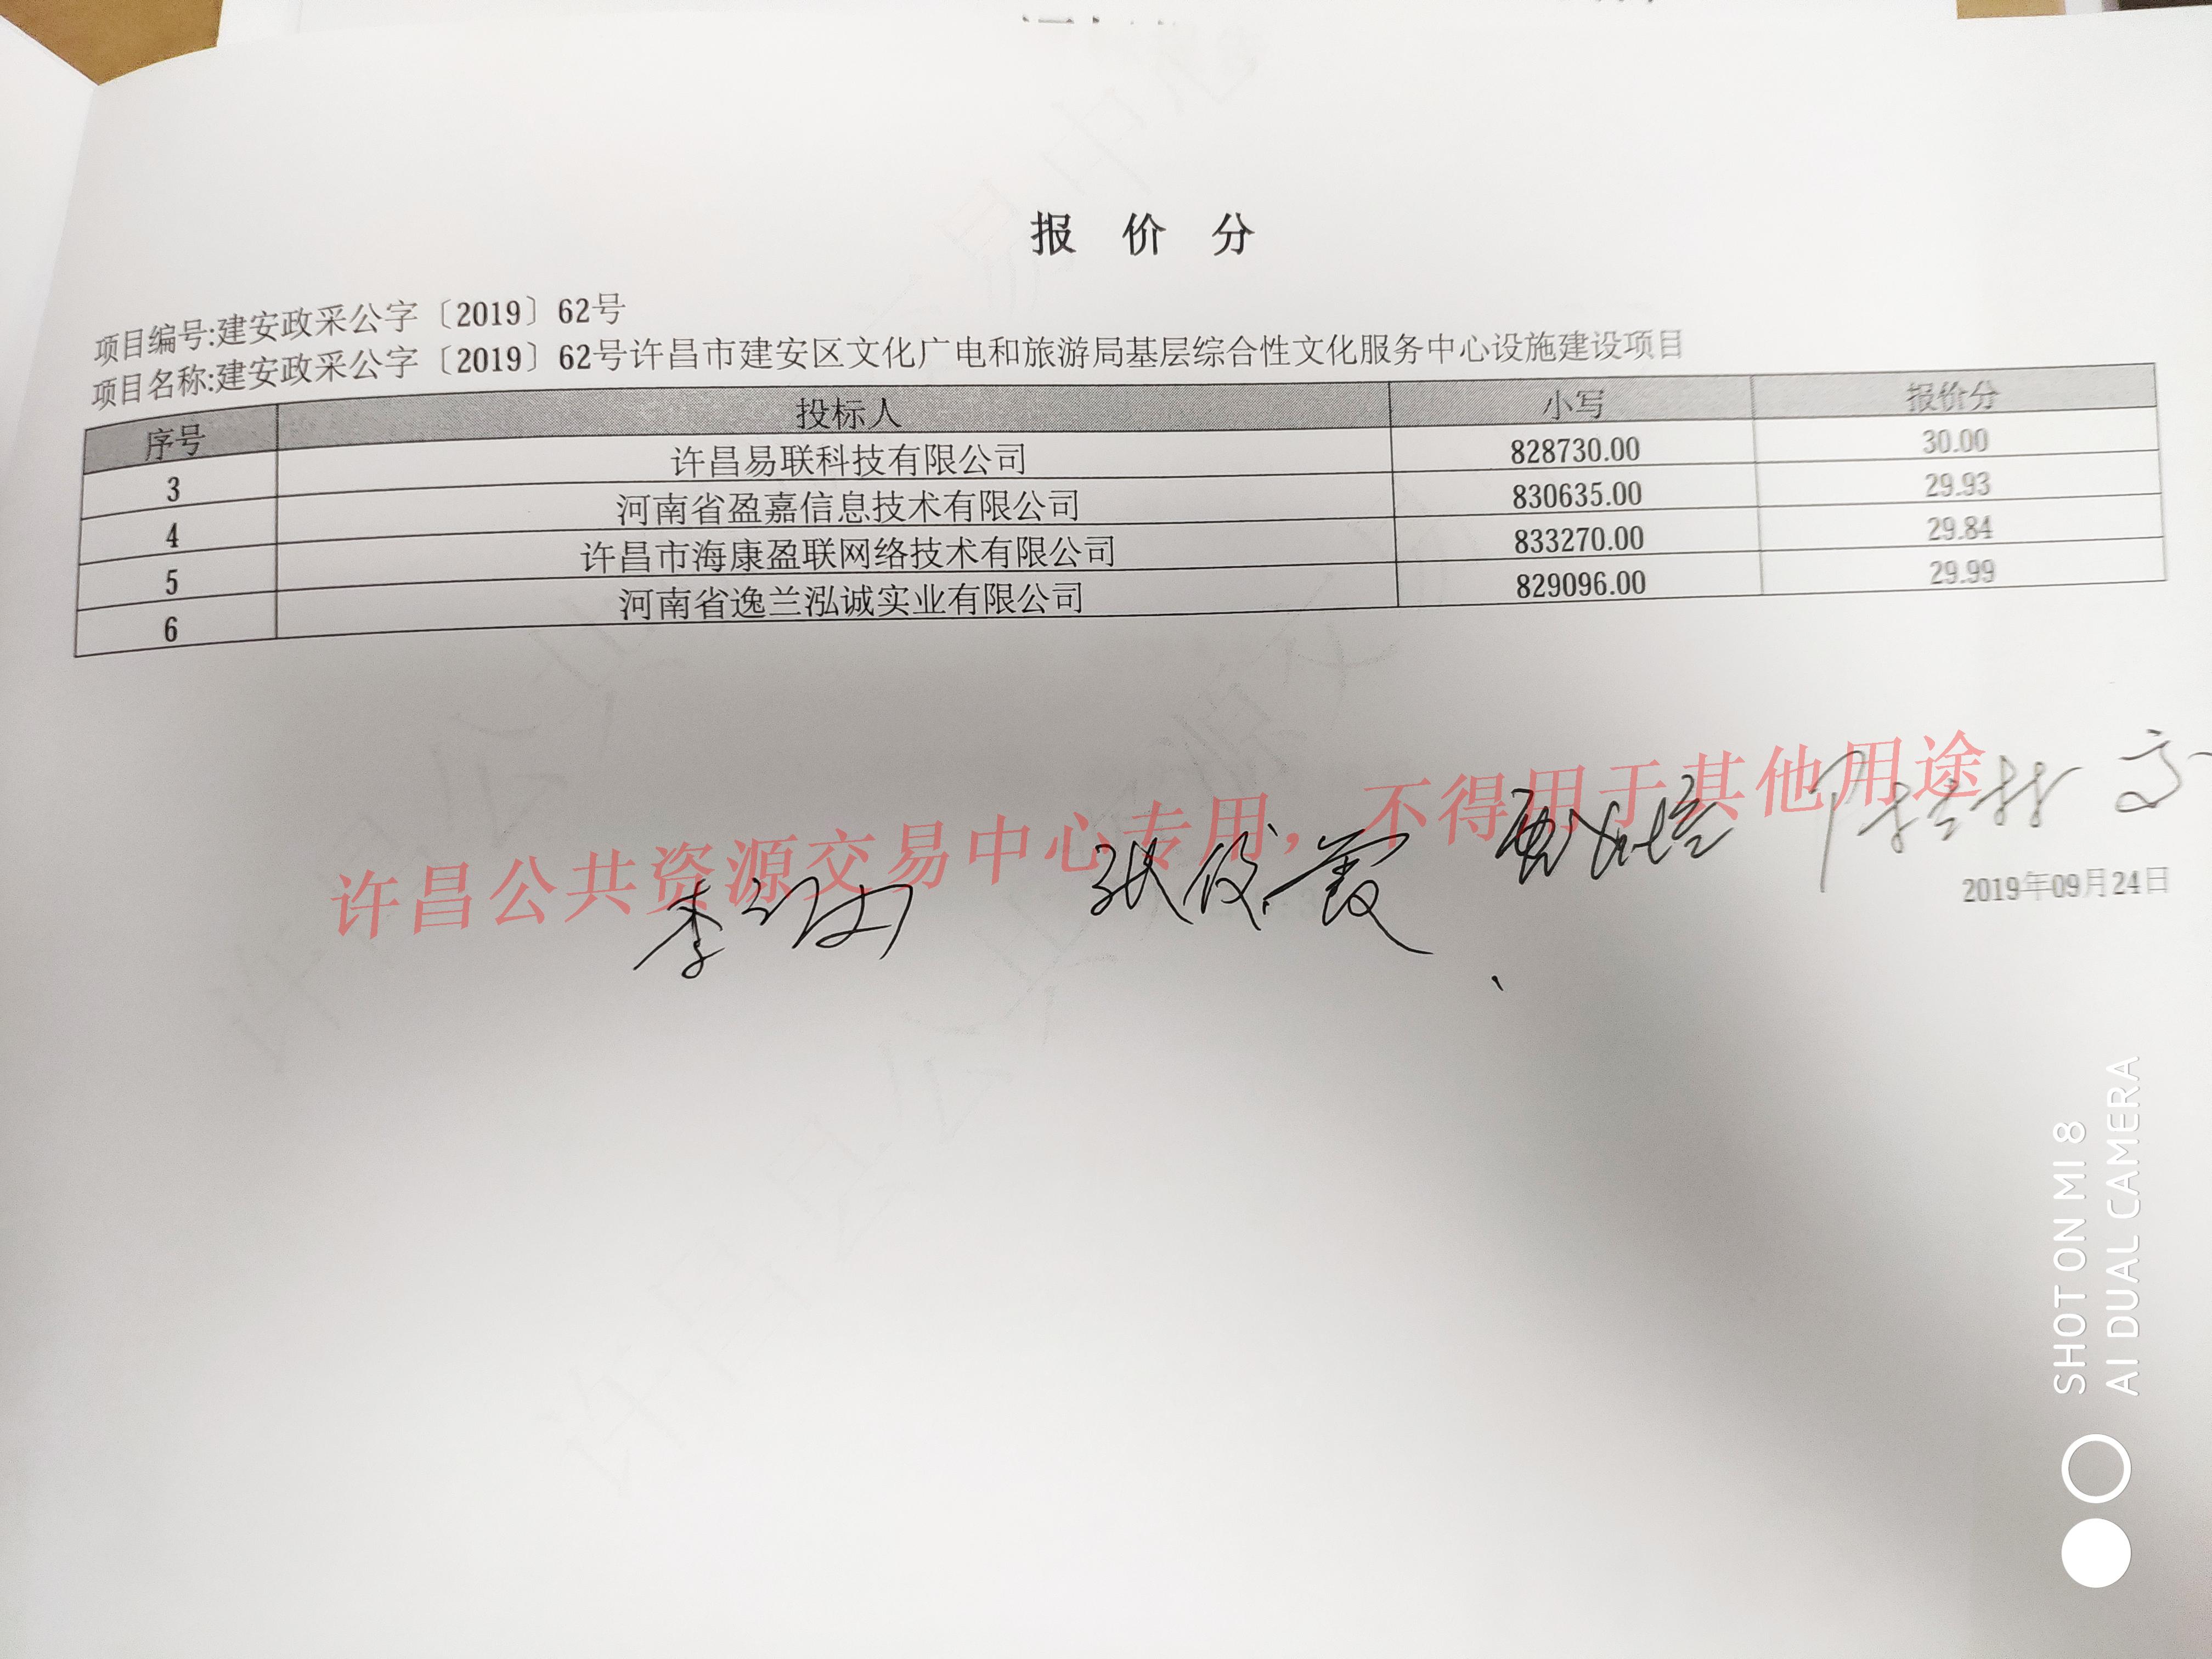 报 价 分
项目编号:建安政采公字〔2019〕62号
项目名称:建安政采公字〔2019〕62号许昌市建安区文化广电和旅游局基层综合性文化服务中心设施建设项目
序号 投标人 小写 报价分
3 许昌易联科技有限公司 828730.00 30.00
4 河南省盈嘉信息技术有限公司 830635.00 29.93
5 许昌市海康盈联网络技术有限公司 833270.00 29.84
6 河南省逸兰泓诚实业有限公司 829096.00 29.99
许昌公共资源交易中心专用，不得用于其他用途
李 张俊霞
2019年09月24日
SHOT ON MI 8
AI DUAL CAMERA